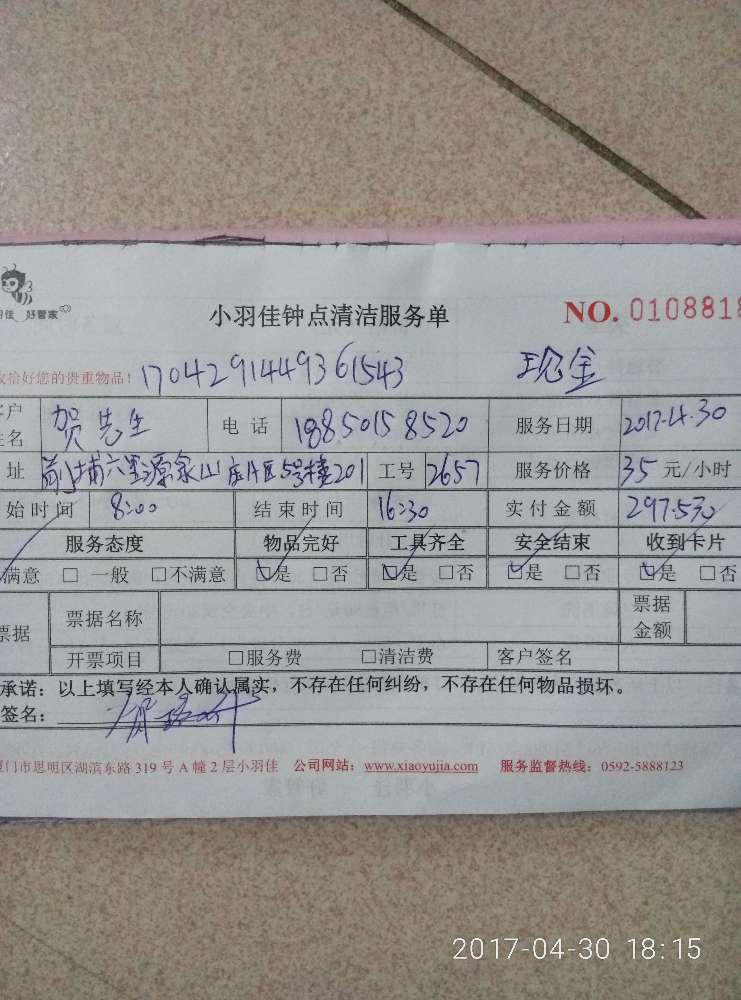 羽佳 好管家
小羽佳钟点清洁服务单
NO. 0108818
收拾好您的贵重物品！ 1704291449361543 现金
客户姓名 贺先生 电话 18850158520 服务日期 2017.4.30
址 前埔六里源泉山庄A区5号楼201 工号 2657 服务价格 35 元/小时
始时间 8:00 结束时间 16:30 实付金额 297.5元
服务态度 物品完好 工具齐全 安全结束 收到卡片
满意 □ 一般 □不满意 □是 □否 □是 □否 □是 □否 □是 □否
票据 票据名称 票据金额
开票项目 □服务费 □清洁费 客户签名
承诺：以上填写经本人确认属实，不存在任何纠纷，不存在任何物品损坏。
签名：
厦门市思明区湖滨东路 319 号 A 幢 2 层小羽佳 公司网站：www.xiaoyujia.com 服务监督热线：0592-5888123
2017-04-30 18:15